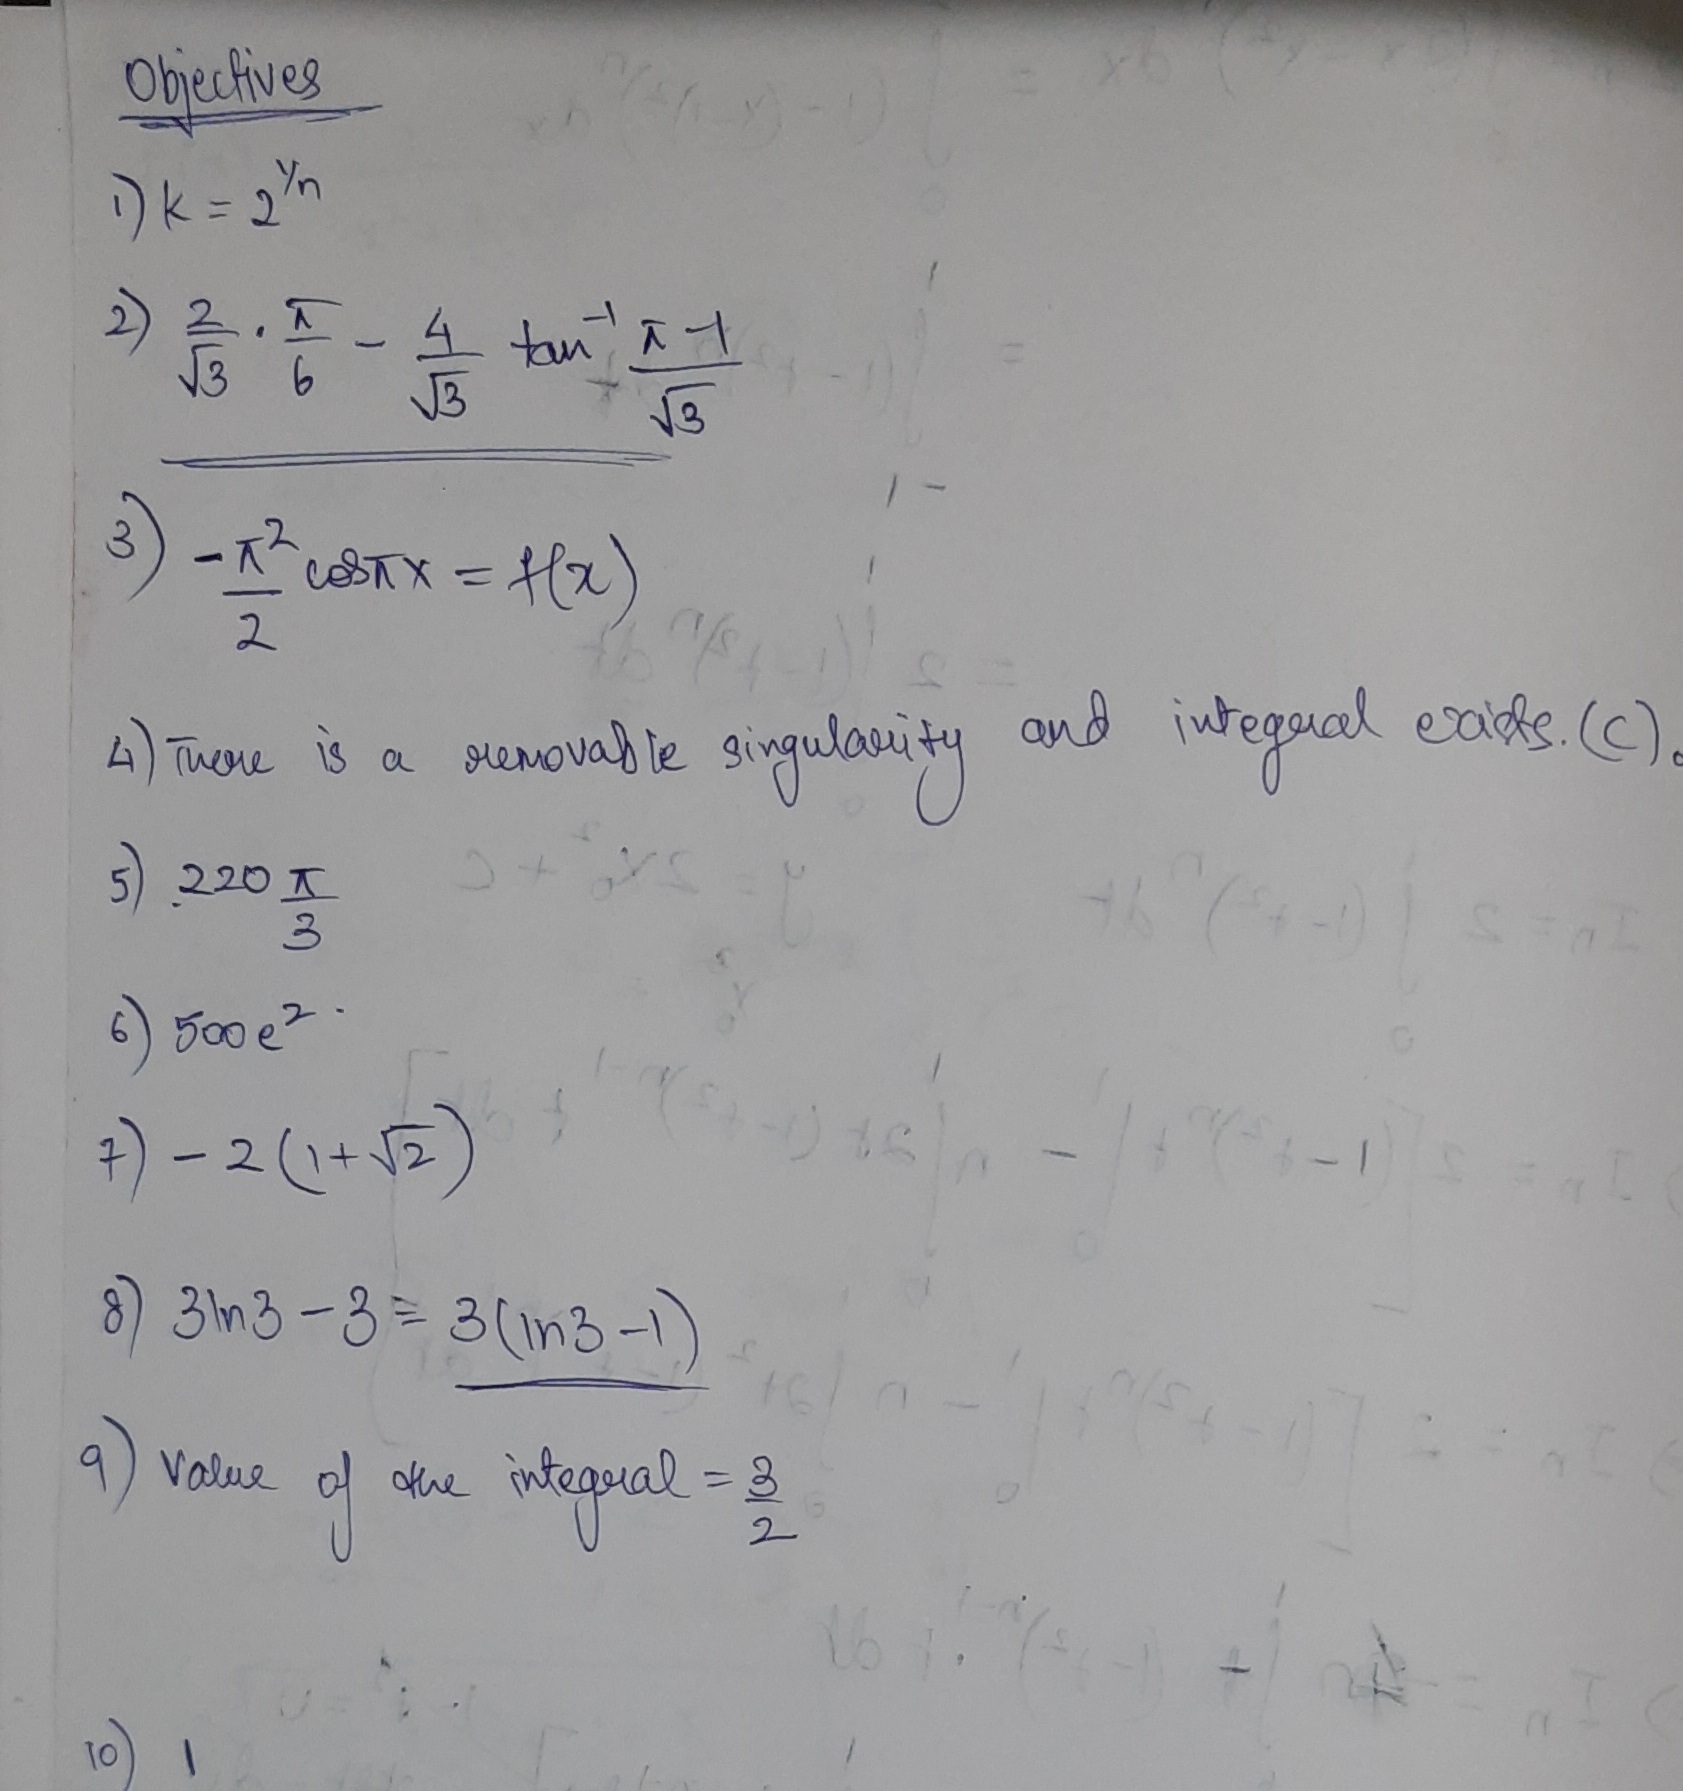 Objectives
1) k = 2^1/n
2) 2/√3 · π/6 - 4/√3 tan^-1 (π-1)/√3
3) -π^2/2 cosπx = f(x)
4) There is a removable singularity and integral exists. (C).
5) 220 π/3
6) 500e^2.
7) - 2(1+√2)
8) 3ln3 - 3 = 3(ln3 - 1)
9) Value of the integral = 3/2
10) 1